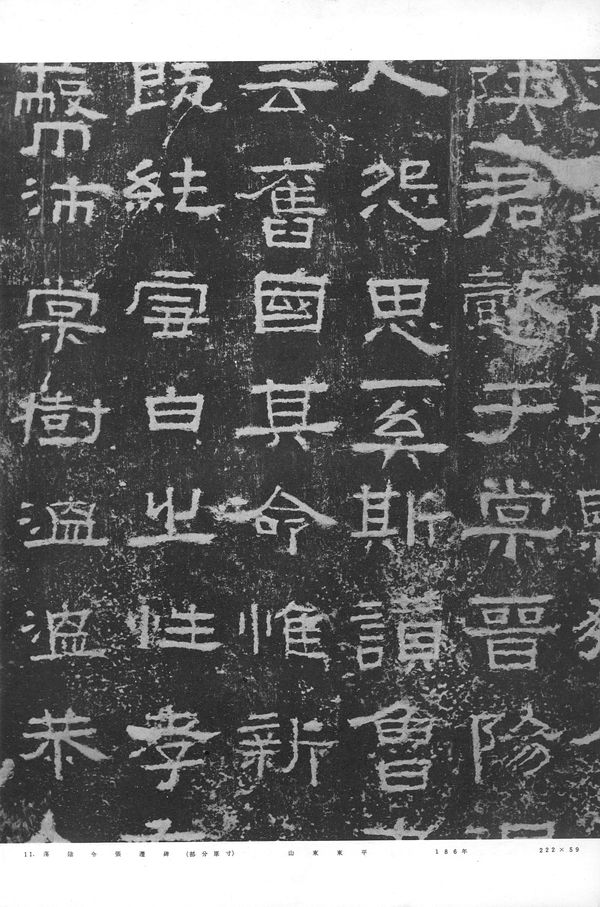 陝君懿于棠晉陽
人怨思奚斯讃魯
云舊國其命惟新
既純雪白之性孝
蔽沛棠樹溫溫恭
11. 蕩陰令張遷碑 (部分原寸) 山東東平 186年 222×59